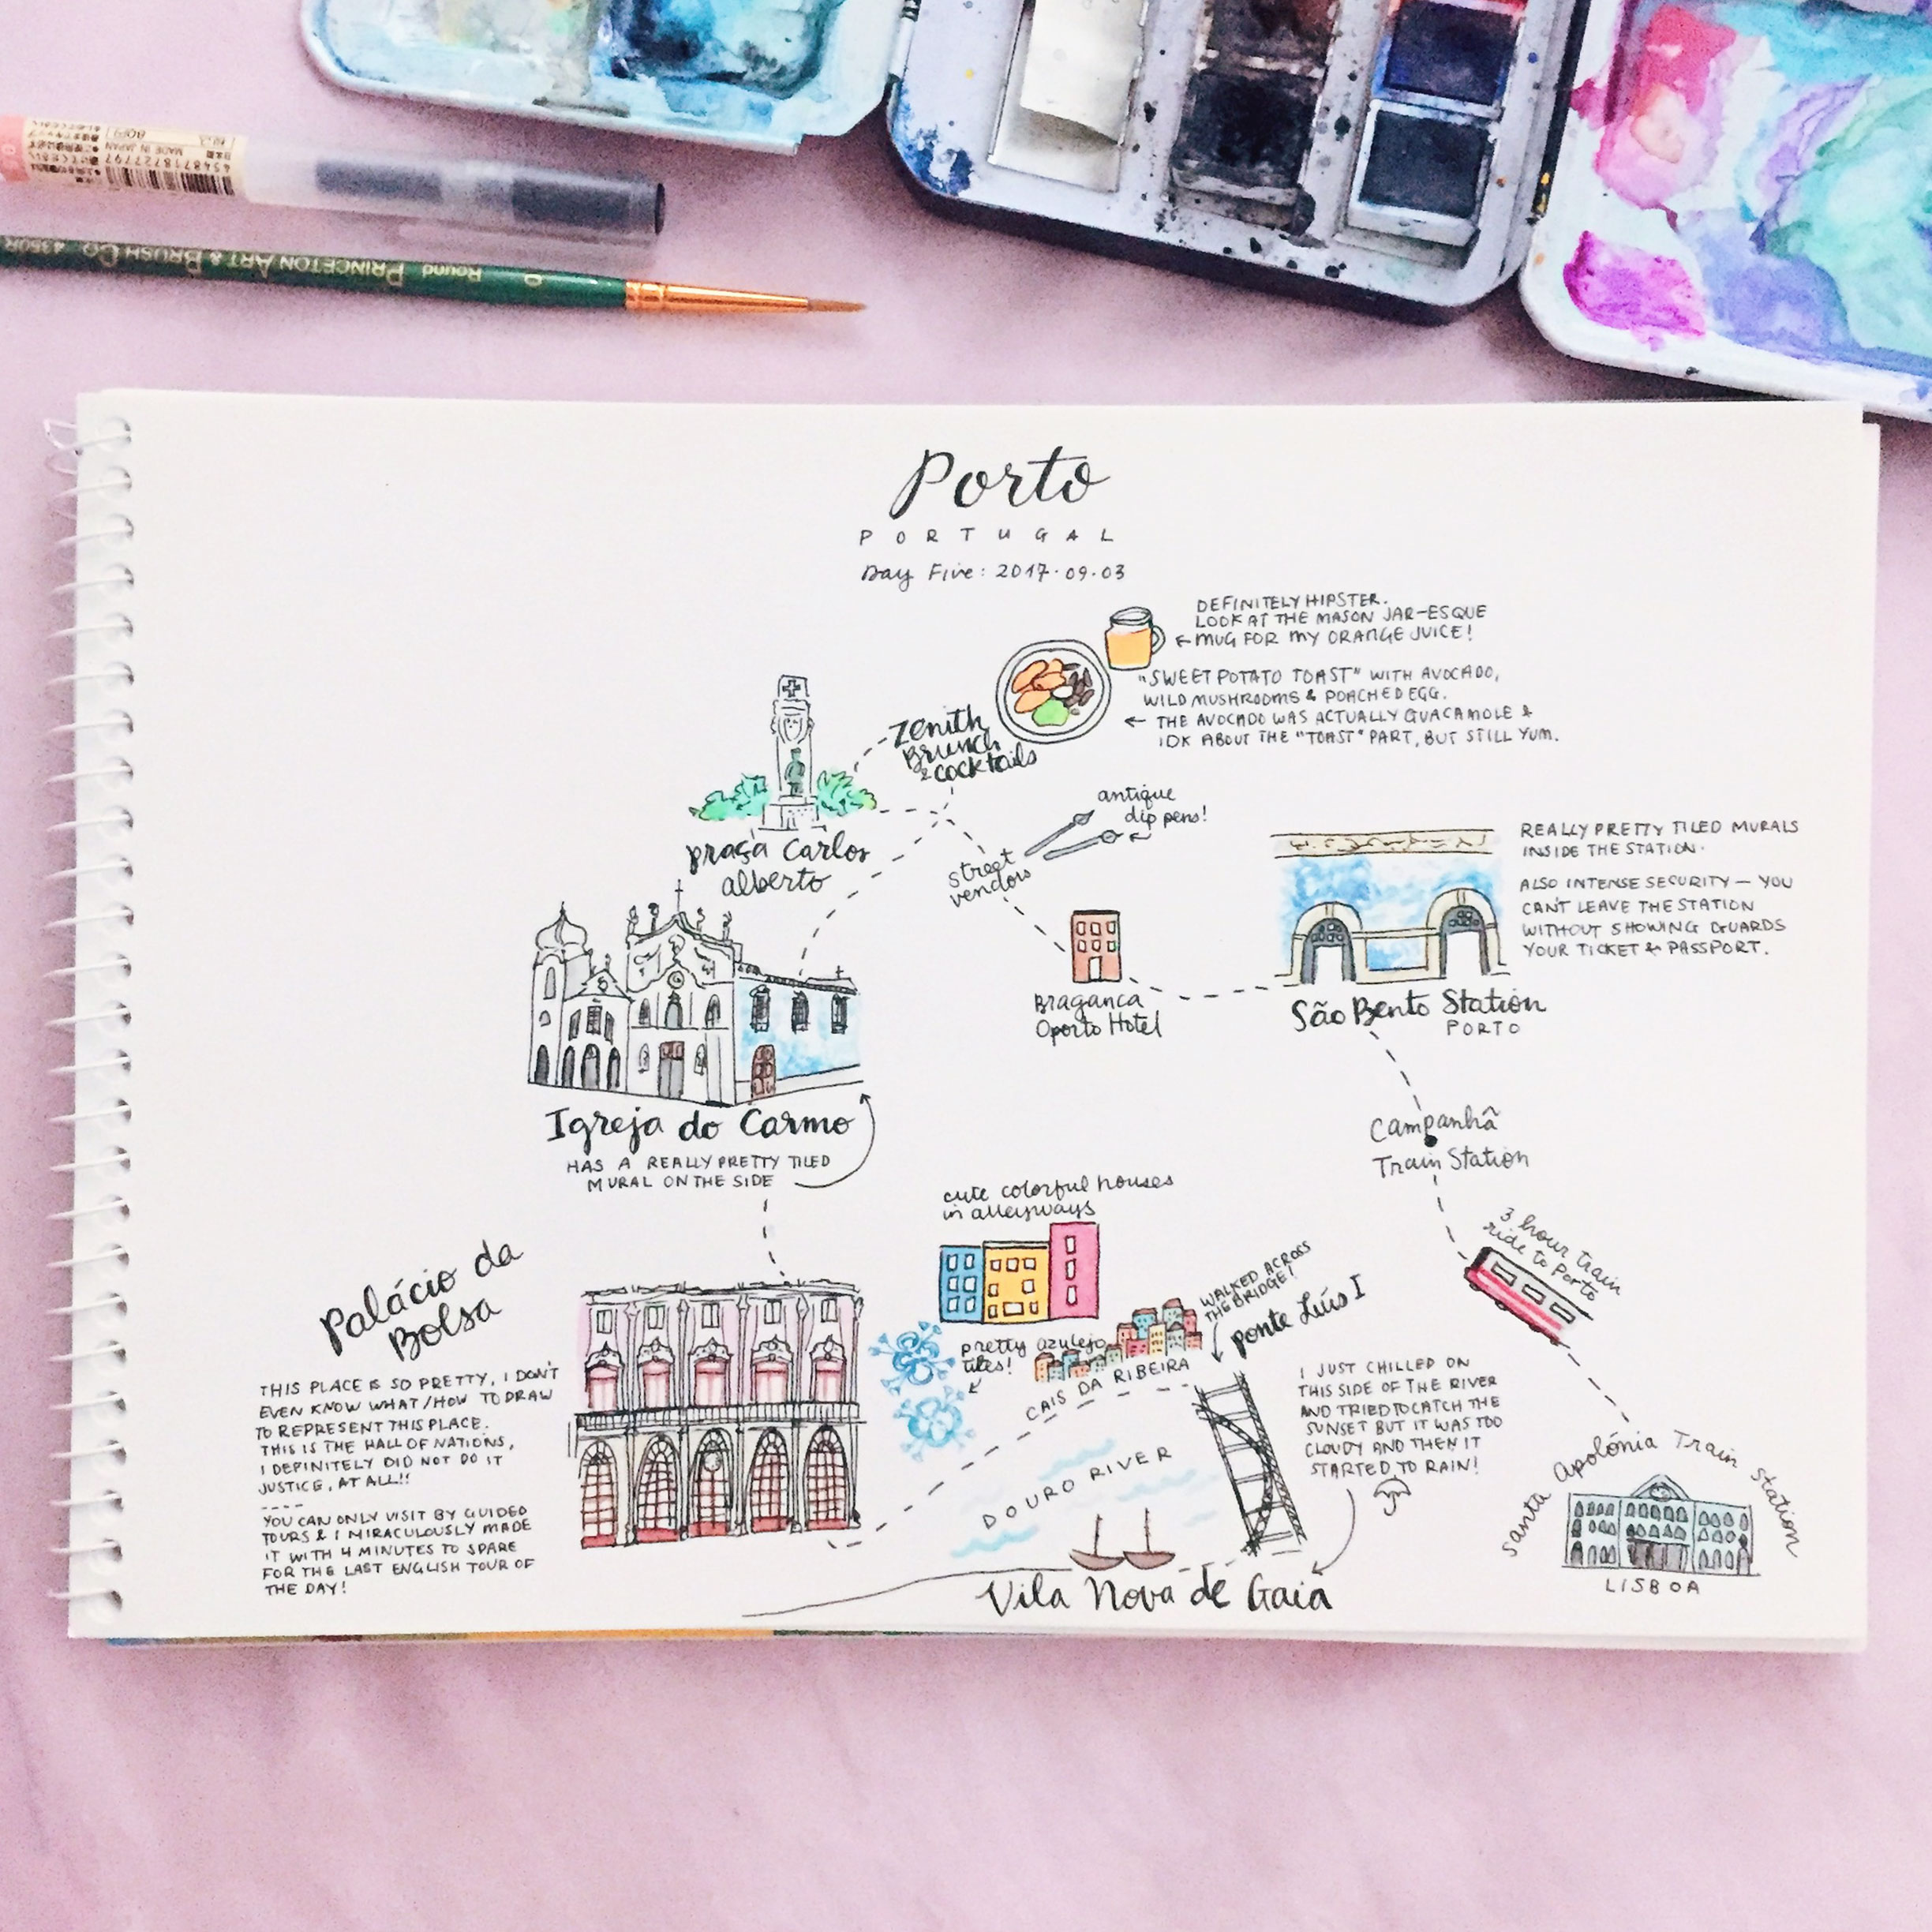 MADE IN JAPAN
4548718727797
PRINCETON ART & BRUSH CO
Round
4350R
0
Porto
PORTUGAL
Day Five: 2017.09.03
DEFINITELY HIPSTER.
LOOK AT THE MASON JAR-ESQUE
MUG FOR MY ORANGE JUICE!
"SWEET POTATO TOAST" WITH AVOCADO,
WILD MUSHROOMS & POACHED EGG.
THE AVOCADO WAS ACTUALLY GUACAMOLE &
IDK ABOUT THE "TOAST" PART, BUT STILL YUM.
Zenith
Brunch
& cocktails
praça Carlos
alberto
antique
dip pens!
street
vendors
REALLY PRETTY TILED MURALS
INSIDE THE STATION.
ALSO INTENSE SECURITY — YOU
CAN'T LEAVE THE STATION
WITHOUT SHOWING GUARDS
YOUR TICKET & PASSPORT.
Braganca
Oporto Hotel
São Bento Station
PORTO
Igreja do Carmo
HAS A REALLY PRETTY TILED
MURAL ON THE SIDE
Campanhã
Train Station
3 hour train
ride to Porto
cute colorful houses
in alleyways
Palácio da
Bolsa
THIS PLACE IS SO PRETTY, I DON'T
EVEN KNOW WHAT/HOW TO DRAW
TO REPRESENT THIS PLACE.
THIS IS THE HALL OF NATIONS,
I DEFINITELY DID NOT DO IT
JUSTICE, AT ALL!!
YOU CAN ONLY VISIT BY GUIDED
TOURS & I MIRACULOUSLY MADE
IT WITH 4 MINUTES TO SPARE
FOR THE LAST ENGLISH TOUR OF
THE DAY!
pretty azulejo
tiles!
CAIS DA RIBEIRA
WALKED ACROSS
THE BRIDGE!
Ponte Luís I
I JUST CHILLED ON
THIS SIDE OF THE RIVER
AND TRIED TO CATCH THE
SUNSET BUT IT WAS TOO
CLOUDY AND THEN IT
STARTED TO RAIN!
DOURO RIVER
Vila Nova de Gaia
Santa Apolónia Train Station
LISBOA